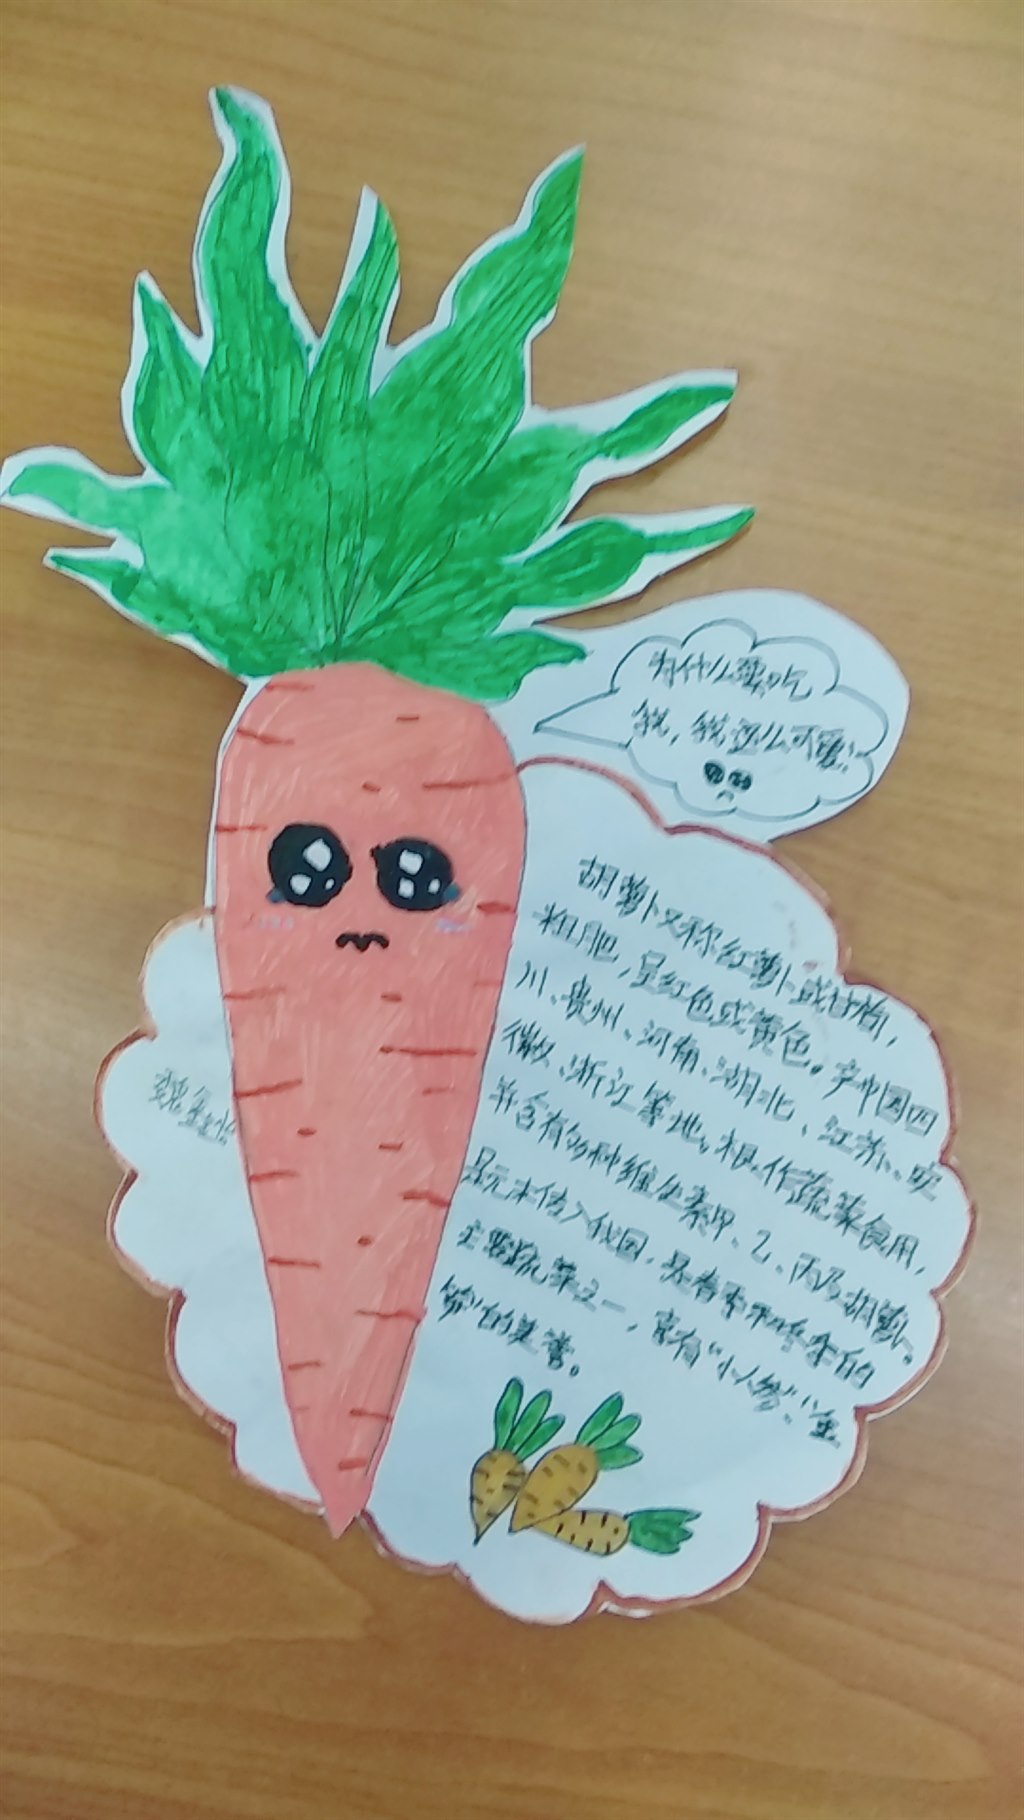 为什么要吃
我，我这么可爱！
胡萝卜又称红萝卜或甘荀，
粗肥，呈红色或黄色。产中国四
川、贵州、河南、湖北、江苏、安
徽、浙江等地。根作蔬菜食用，
并含有多种维生素甲、乙、丙及胡萝。
是元末传入我国，是春季和冬季的
主要蔬菜之一，富有“小人参”、“金
笋”的美誉。
魏